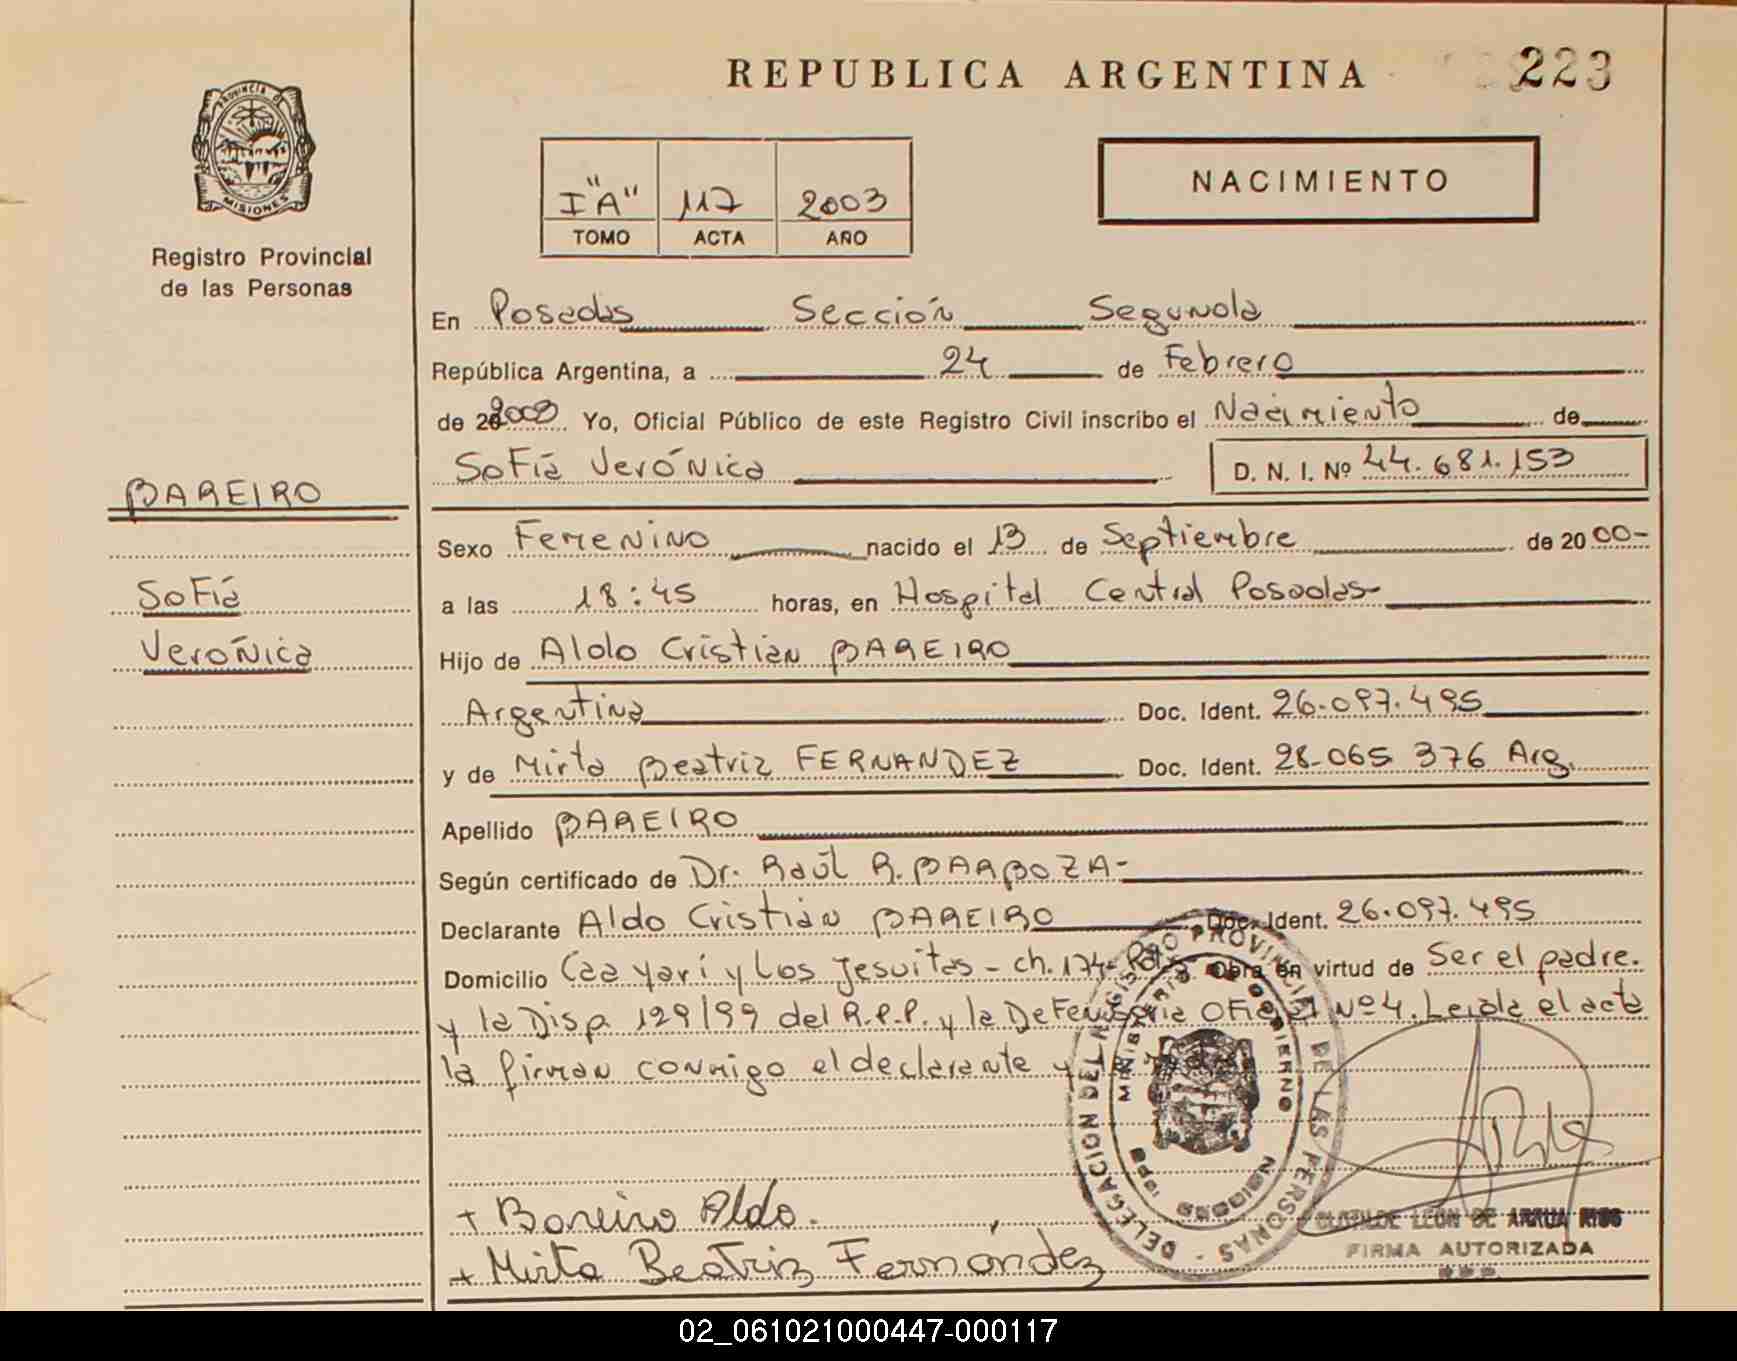 REPUBLICA ARGENTINA
223
PROVINCIA DE
MISIONES
Registro Provincial
de las Personas
I "A" 117 2003
TOMO ACTA AÑO
NACIMIENTO
En Posadas Sección Segunda
República Argentina, a 24 de Febrero
de 2003 Yo, Oficial Público de este Registro Civil inscribo el Nacimiento de
Sofía Verónica D. N. I. Nº 44.681.153
BAREIRO
Sofía
Verónica
Sexo Femenino nacido el 13 de Septiembre de 2000-
a las 18:45 horas, en Hospital Central Posadas-
Hijo de Aldo Cristian BAREIRO
Argentina Doc. Ident. 26.097.495
y de Mirta Beatriz FERNANDEZ Doc. Ident. 28.065 376 Arg.
Apellido BAREIRO
Según certificado de Dr. Raúl R. BARBOZA-
Declarante Aldo Cristián BAREIRO Doc. Ident. 26.097.495
Domicilio Caa yarí y Los Jesuitas - ch. 174- Obra en virtud de Ser el padre.
y la Disp. 129/99 del R.P.P. y la Defensoría Oficial Nº 4. Leida el acta
la firman conmigo el declarante y la
DELEGACION DEL REGISTRO PROVINCIAL DE LAS PERSONAS
MINISTERIO DE GOBIERNO
MISIONES
+ Bareiro Aldo.
+ Mirta Beatriz Fernández
CLOTILDE LEON DE ARRUA RIOS
FIRMA AUTORIZADA
R.P.P.
02_061021000447-000117